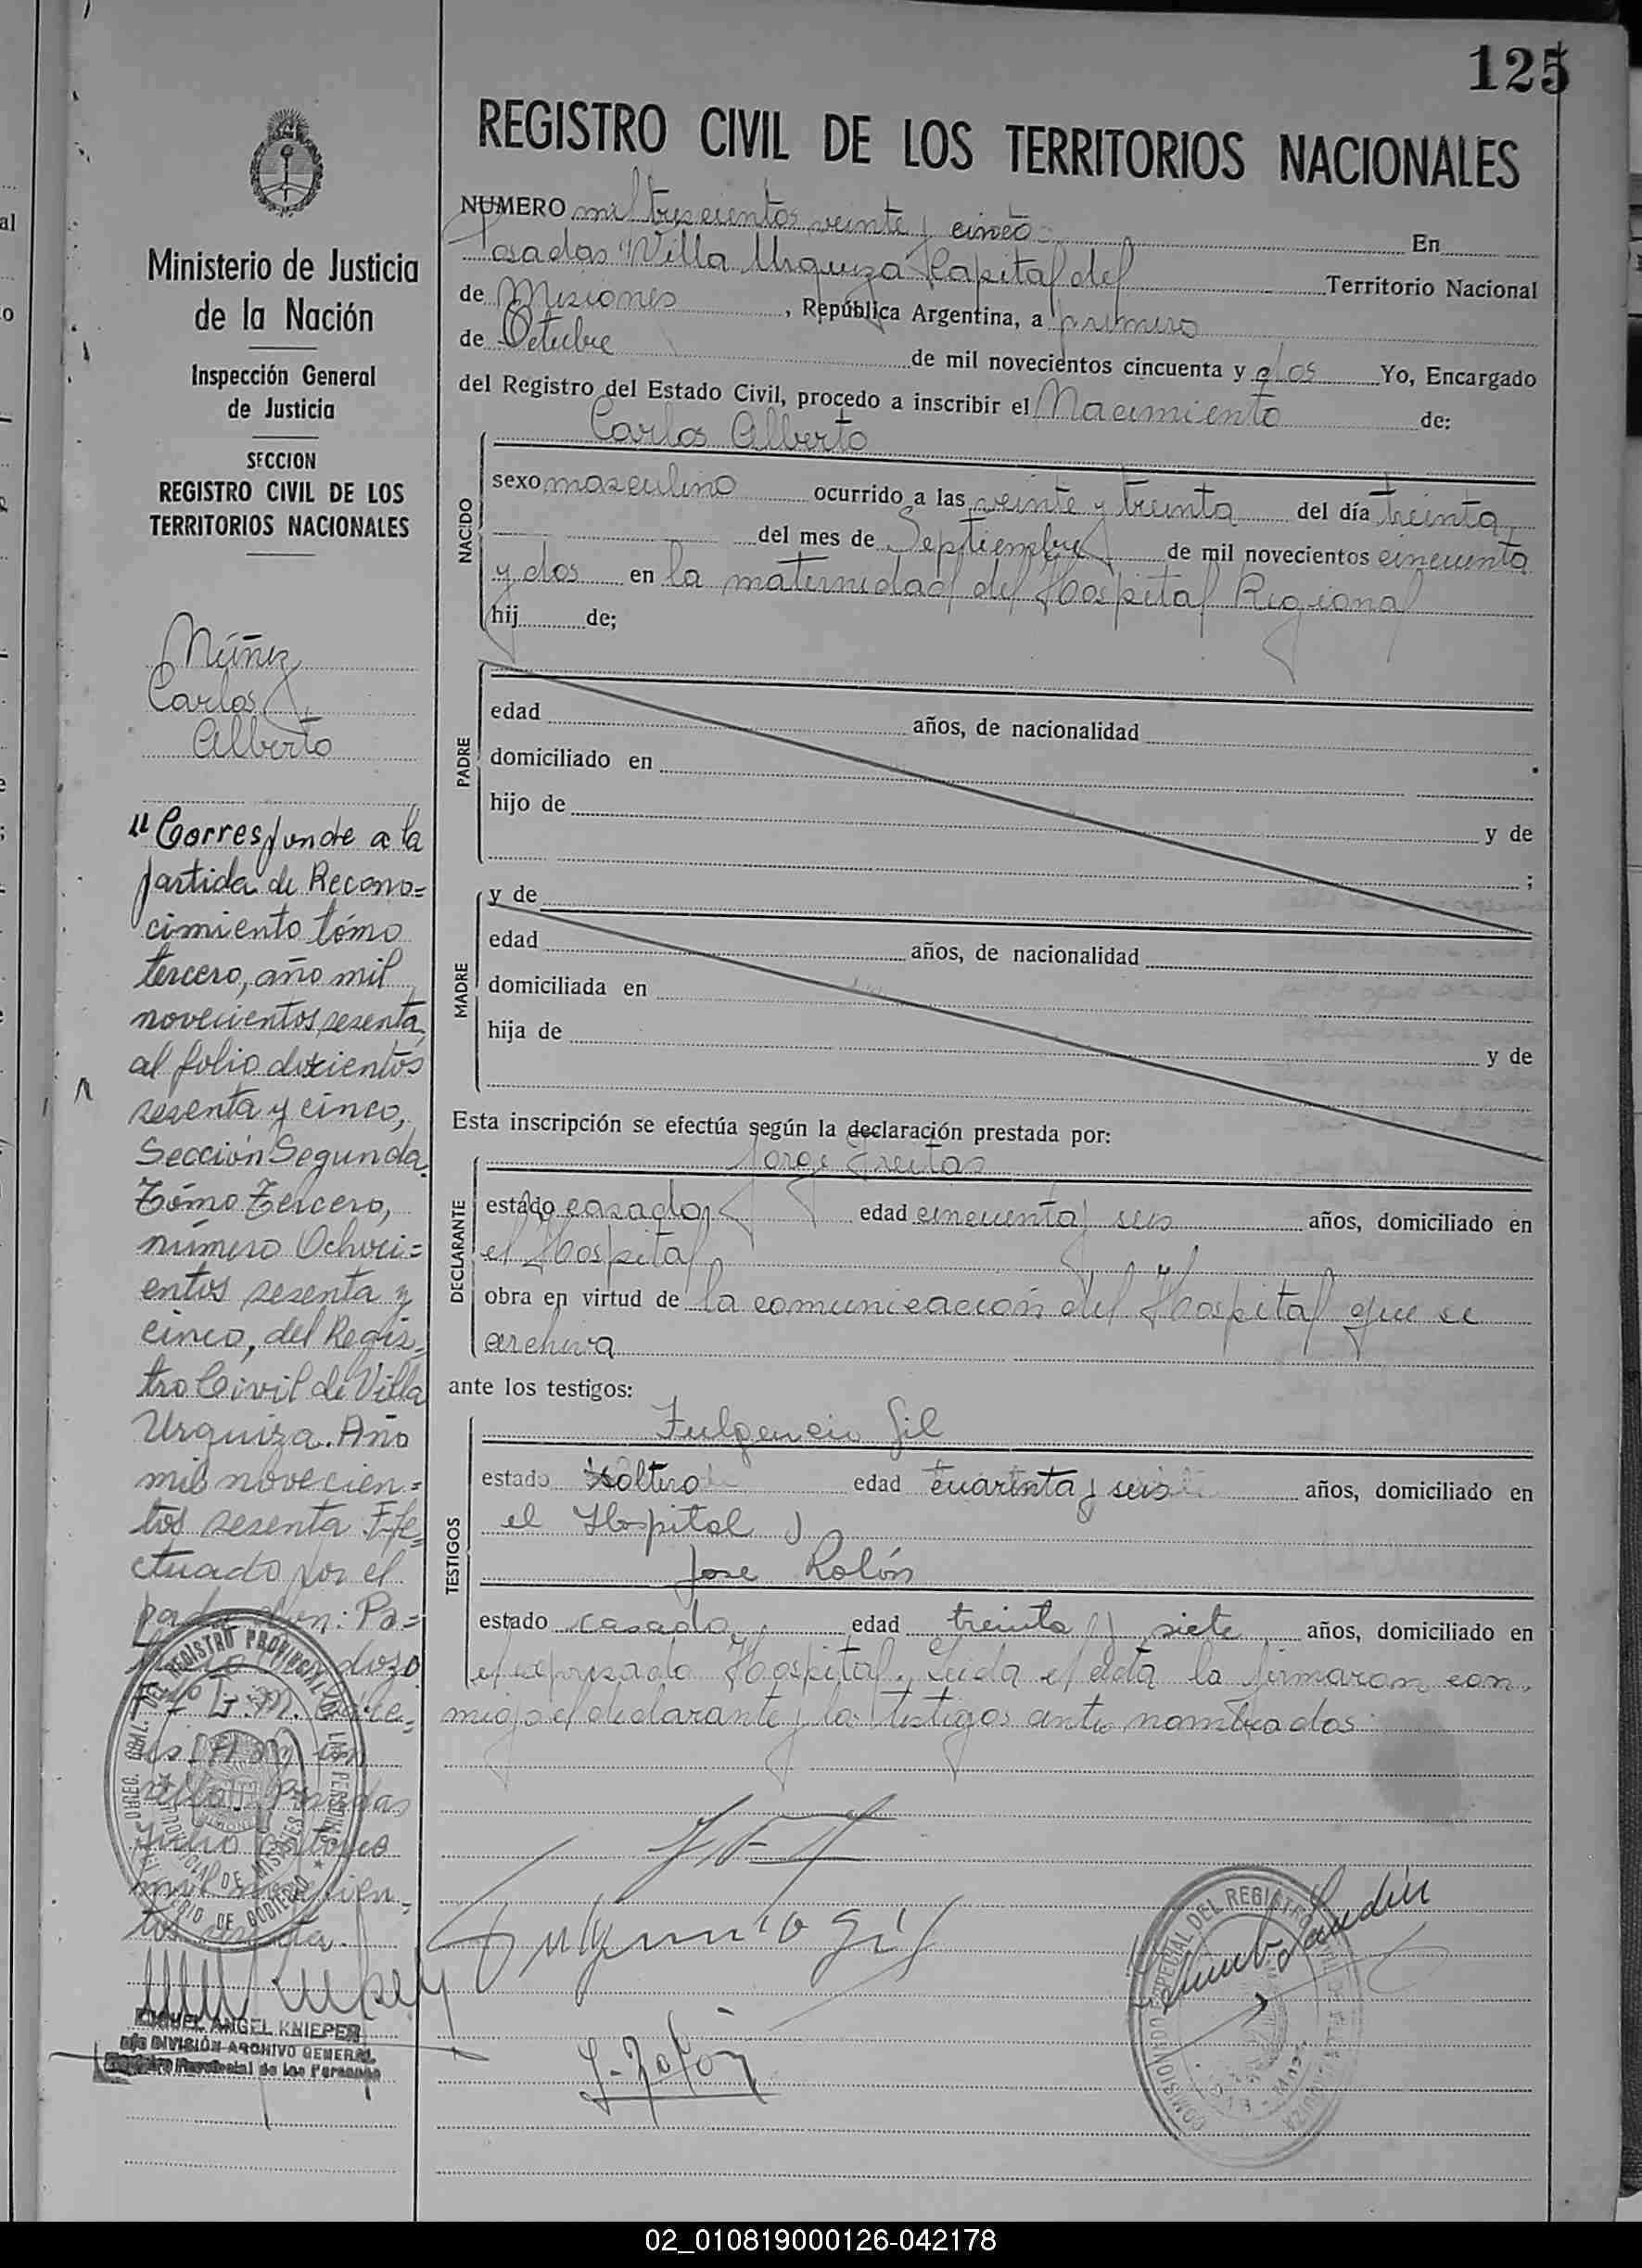 125
REGISTRO CIVIL DE LOS TERRITORIOS NACIONALES
Ministerio de Justicia
de la Nación
Inspección General
de Justicia
SECCION
REGISTRO CIVIL DE LOS
TERRITORIOS NACIONALES
Núñez
Carlos
Alberto
"Corresponde a la
partida de Recono=
cimiento tómo
tercero, año mil
novecientos sesenta,
al folio doscientos
sesenta y cinco,
Sección Segunda
Tómo Tercero,
número Ochoci=
entos sesenta y
cinco, del Regis=
tro Civil de Villa
Urquiza. Año
mil novecien=
tos sesenta. Efe=
ctuado por el
NUMERO mil trescientos veinte y cinco En
Posadas Villa Urquiza Capital del Territorio Nacional
de Misiones, República Argentina, a primero
de Octubre de mil novecientos cincuenta y dos Yo, Encargado
del Registro del Estado Civil, procedo a inscribir el Nacimiento de:
NACIDO
Carlos Alberto
sexo masculino ocurrido a las veinte y treinta del día treinta
del mes de Septiembre de mil novecientos cincuenta
y dos en la maternidad del Hospital Regional
hij de;
PADRE
edad años, de nacionalidad
domiciliado en
hijo de y de
;
MADRE
y de
edad años, de nacionalidad
domiciliada en
hija de y de
Esta inscripción se efectúa según la declaración prestada por:
DECLARANTE
Jorge Freitas
estado casado edad cincuenta y seis años, domiciliado en
el Hospital
obra en virtud de la comunicación del Hospital que se
archiva
ante los testigos:
TESTIGOS
Fulgencio Gil
estado soltero edad cuarenta y seis años, domiciliado en
el Hospital y
Jose Rolón
estado casado edad treinta y siete años, domiciliado en
el expresado Hospital. Leida el acta la firmaron con-
migo el declarante y los testigos antes nombrados
Fulgencio Gil
J. Rolón
MIGUEL ANGEL KNIEPER
DIVISIÓN ARCHIVO GENERAL
Registro Provincial de las Personas
02_010819000126-042178